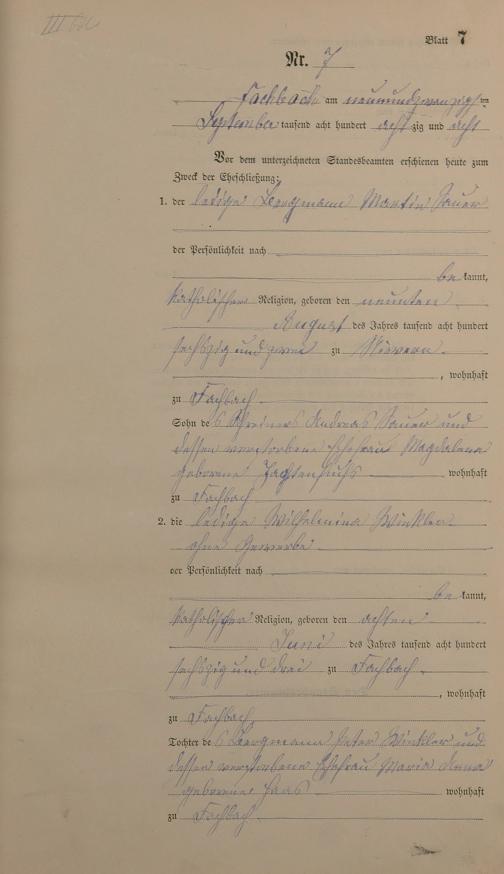 Blatt 7
Nr. 7
Fachbach am neunundzwanzigsten
September tausend acht hundert achtzig und acht
Vor dem unterzeichneten Standesbeamten erschienen heute zum
Zweck der Eheschließung:
1. der ledige Bergmann Martin Sauer
der Persönlichkeit nach
bekannt,
katholischer Religion, geboren den neunten
August des Jahres tausend acht hundert
sechszig und zwei zu Nievern
, wohnhaft
zu Fachbach
Sohn des Schreiners Andreas Sauer und
dessen verstorbene Ehefrau Magdalena
geborene wohnhaft
zu Fachbach
2. die ledige Wilhelmina Winkler
ohne Gewerbe
der Persönlichkeit nach
bekannt,
katholischer Religion, geboren den achten
Juni des Jahres tausend acht hundert
sechszig und drei zu Fachbach
, wohnhaft
zu Fachbach
Tochter des Bergmann Peter Winkler und
dessen verstorbene Ehefrau Maria Anna
geborene Haas wohnhaft
zu Fachbach